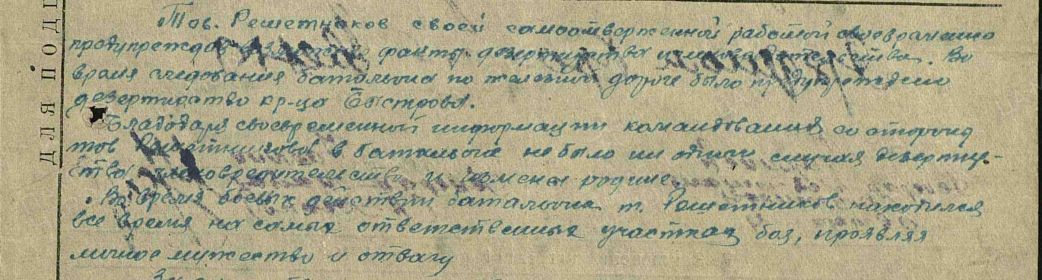 Тов. Решетников своей самоотверженной работой своевременно
предупреждал факты дезертирства и членовредительства. Во
время следования батальона по железной дороге было предупреждено
дезертирство кр-ца Быстрова.
Благодаря своевременной информации командования со стороны
тов Решетникова в батальоне не было ни одного случая дезертир-
ства, членовредительства и измены родине.
Во время боевых действий батальона т. Решетников находился
все время на самых ответственных участках боя, проявляя
личное мужество и отвагу
ДЛЯ ПОДШ